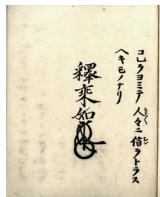 コレヲヨミテ人々ニ信ヲトラス
ヘキモノナリ
釋乗如